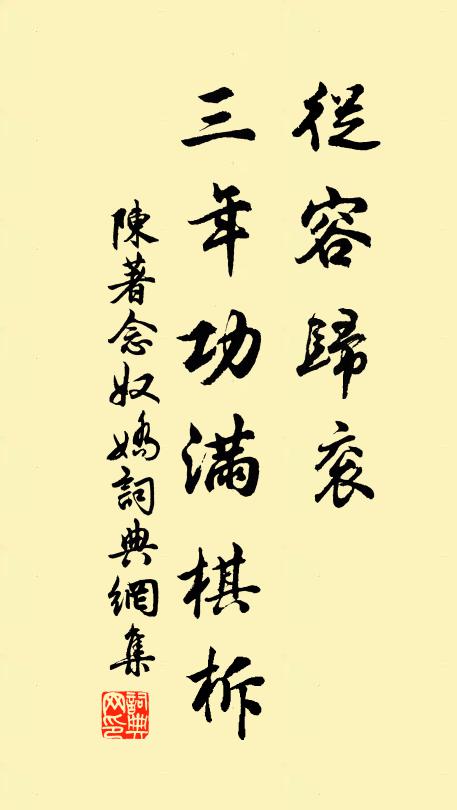 從容歸衮
三年功滿棋柝
陳著念奴嬌詞典網集
詞典网印